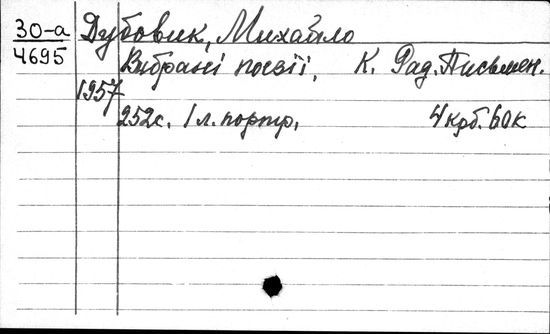 30-а Дубовик, Михайло
4695 Вибрані поезії, К. Рад. Письмен.
1957
252с. 1 л. портр. 4 крб. 60к